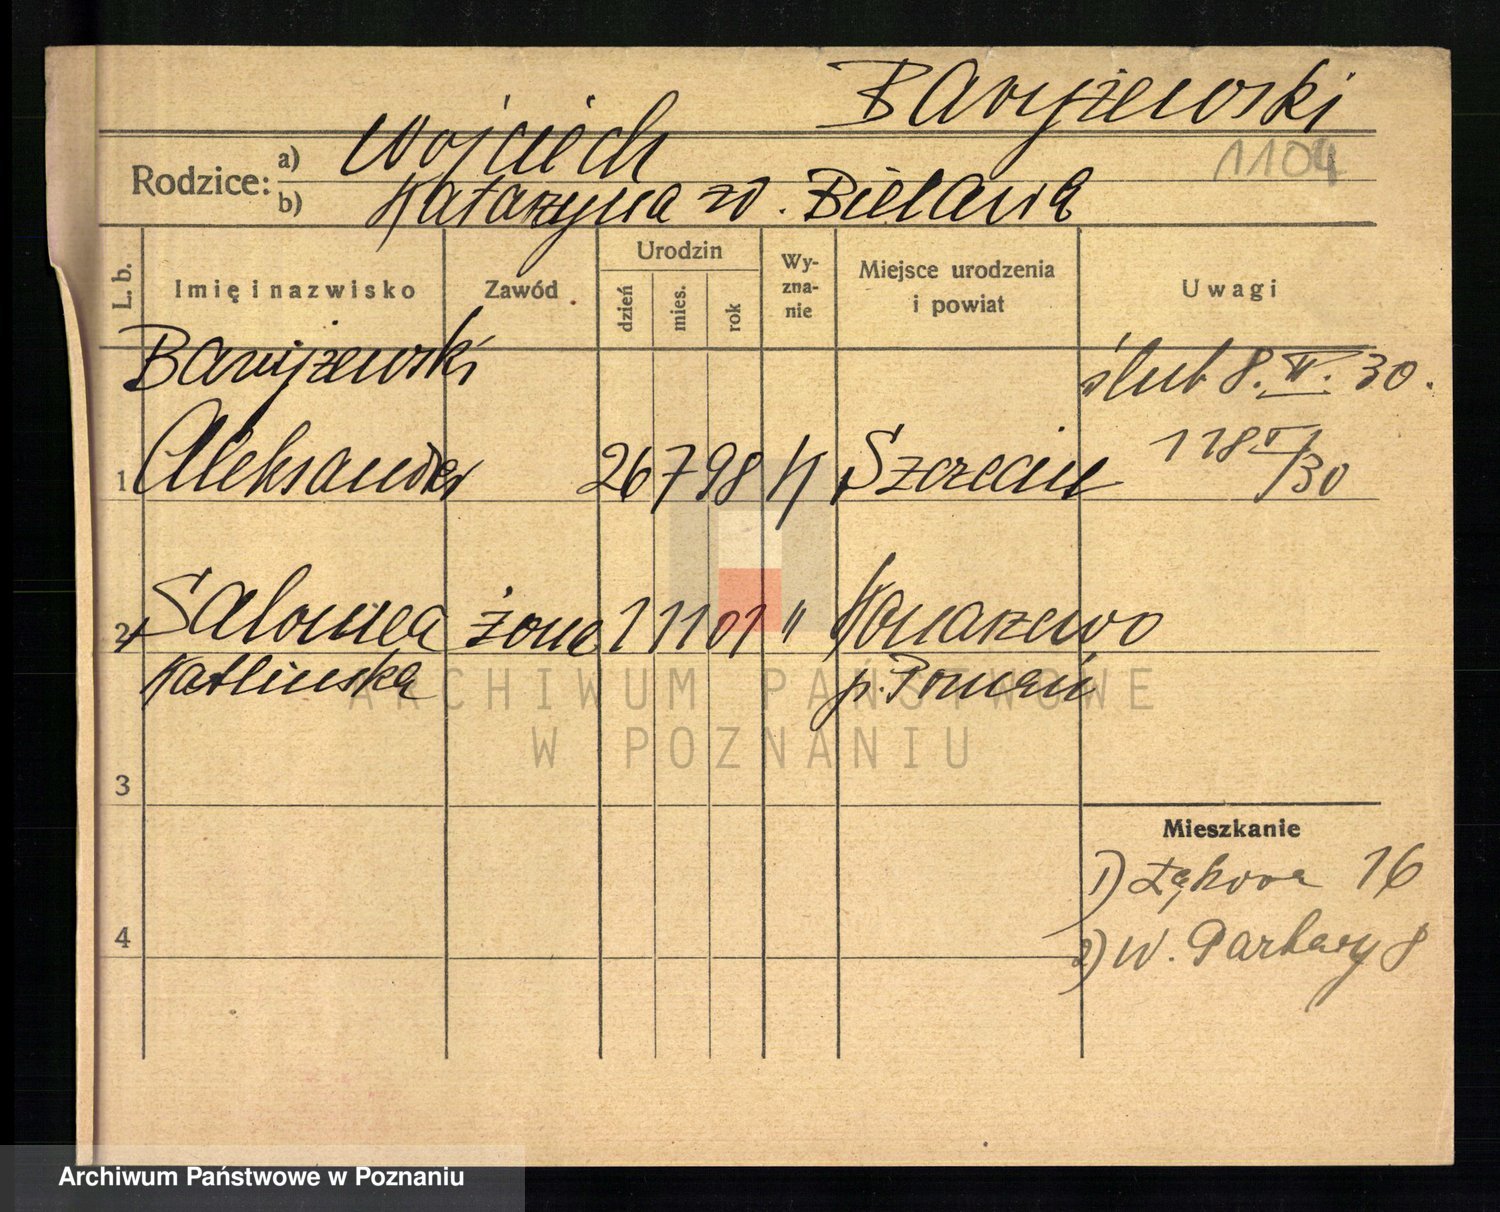 Baryżewski
1104
Wojciech
Rodzice: a)
b)
Katarzyna zd. Bielawa
L. b.
Imię i nazwisko
Zawód
Urodzin
dzień
mies.
rok
Wy-
zna-
nie
Miejsce urodzenia
i powiat
Uwagi
Baryżewski
ślub 8. IV. 30.
1 Aleksander 26 7 98 K Szczecin
118 /30
2 Salomea żona 1 11 01 " Konarzewo
Katlinska p. Poznań
ARCHIWUM PAŃSTWOWE
W POZNANIU
3
Mieszkanie
1) Łąkowa 16
4
2) W. Garbary 8
Archiwum Państwowe w Poznaniu